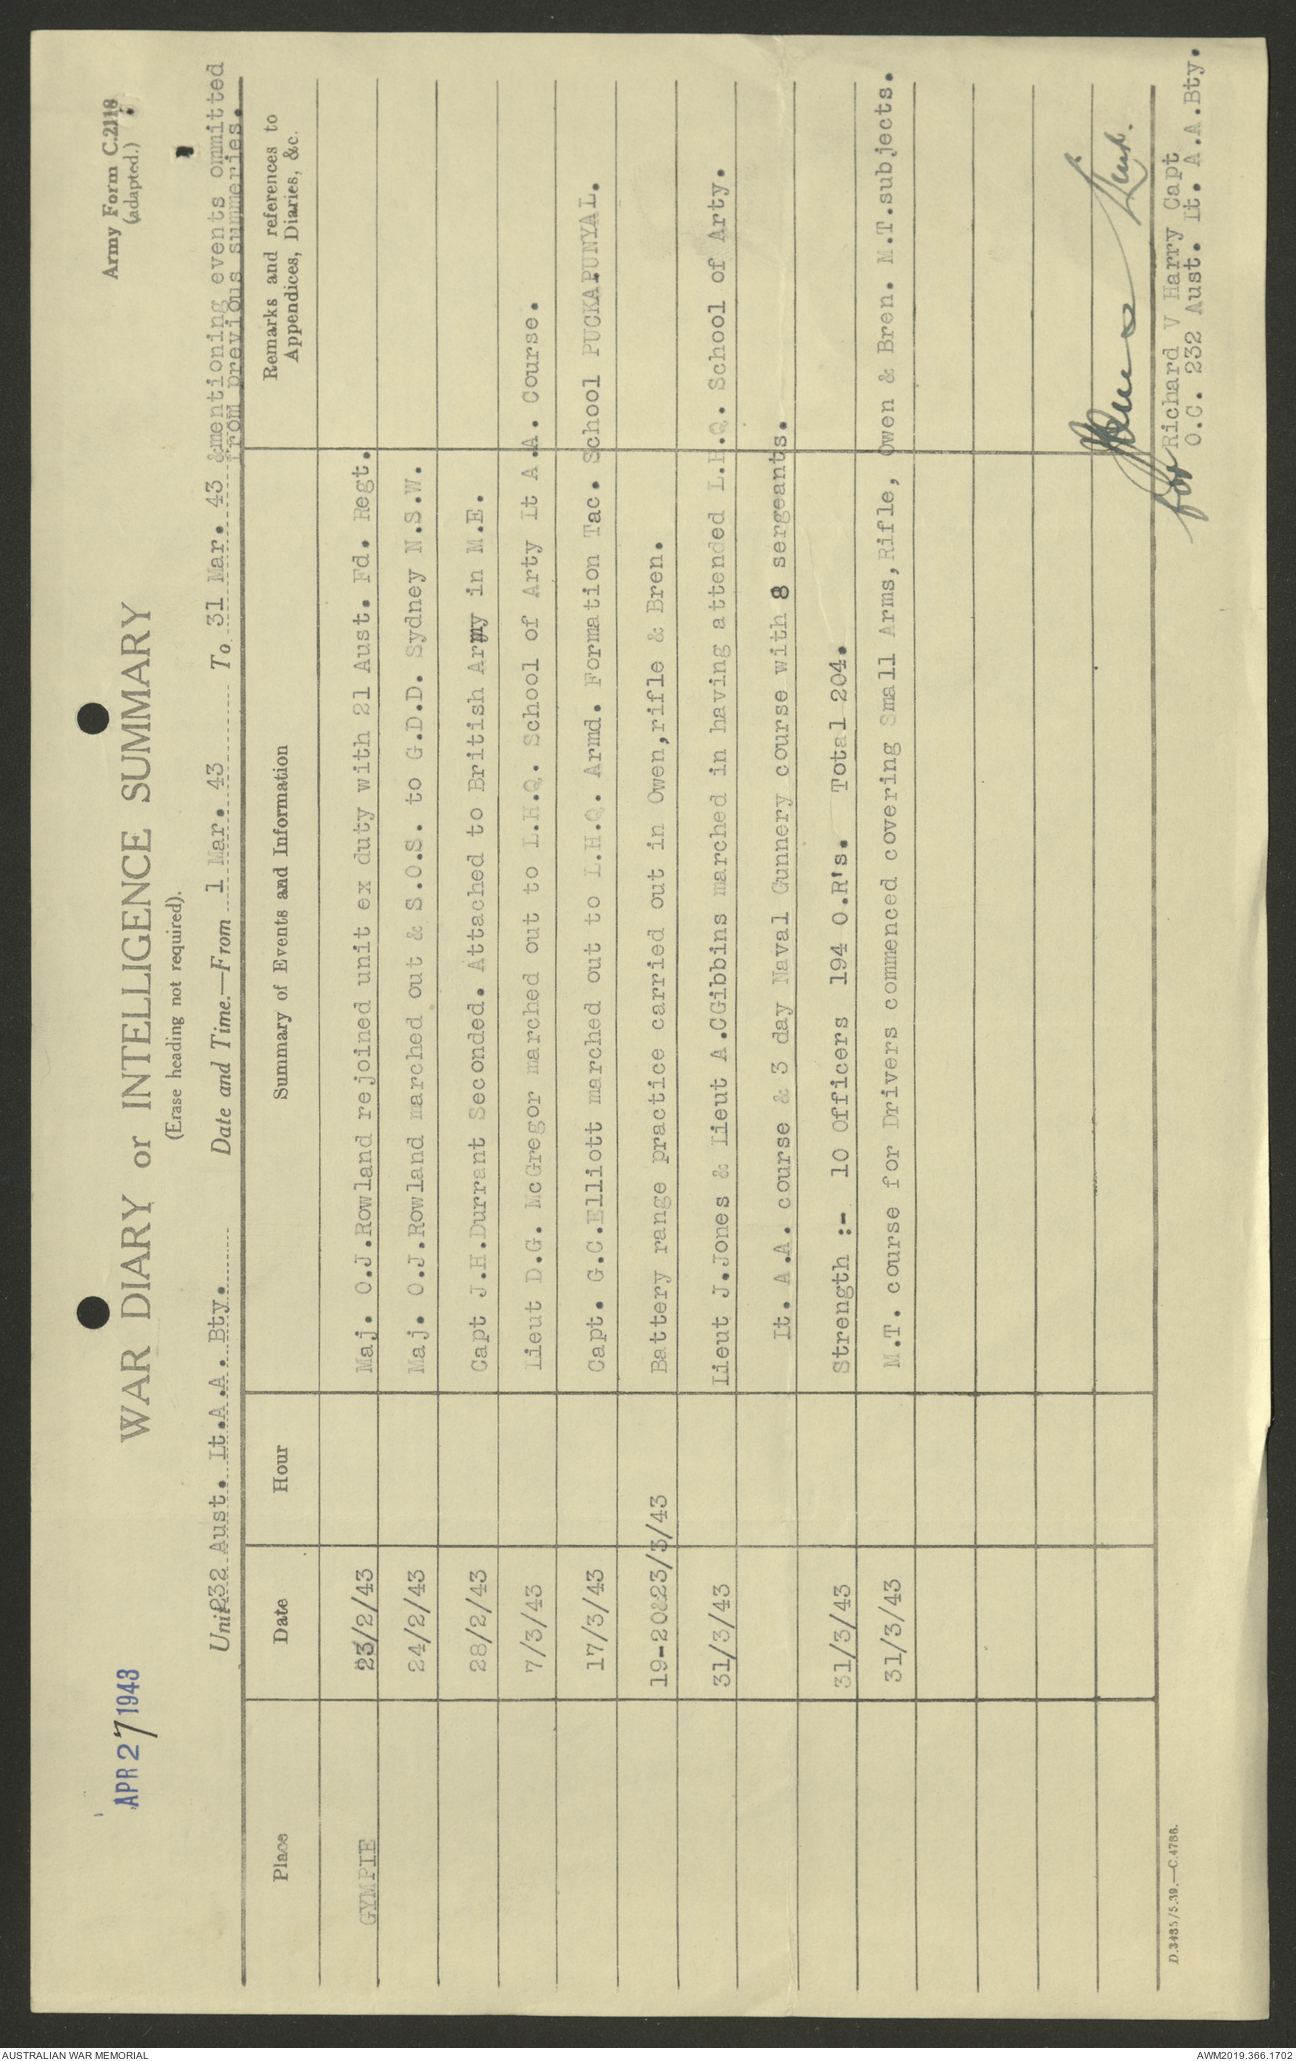 APR 27 1943
Army Form C.2118
(adapted.)
WAR DIARY or INTELLIGENCE SUMMARY
(Erase heading not required).
Unit 232 Aust. Lt.A.A. Bty. Date and Time.—From 1 Mar. 43 To 31 Mar. 43 &mentioning events ommitted
from previous summeries.
Place Date Hour Summary of Events and Information Remarks and references to Appendices, Diaries, &c.
GYMPIE 23/2/43 Maj. O.J.Rowland rejoined unit ex duty with 21 Aust. Fd. Regt.
24/2/43 Maj. O.J.Rowland marched out & S.O.S. to G.D.D. Sydney N.S.W.
28/2/43 Capt J.H.Durrant Seconded. Attached to British Army in M.E.
7/3/43 Lieut D.G. McGregor marched out to L.H.Q. School of Arty Lt A.A. Course.
17/3/43 Capt. G.C.Elliott marched out to L.H.Q. Armd. Formation Tac. School PUCKAPUNYAL.
19-20&23/3/43 Battery range practice carried out in Owen,rifle & Bren.
31/3/43 Lieut J.Jones & Lieut A.CGibbins marched in having attended L.H.Q. School of Arty.
Lt. A.A. course & 3 day Naval Gunnery course with 8 sergeants.
31/3/43 Strength :- 10 Officers 194 O.R's. Total 204.
31/3/43 M.T. course for Drivers commenced covering Small Arms,Rifle, Owen & Bren. M.T.subjects.
for
Richard V Harry Capt
O.C. 232 Aust. Lt. A.A.Bty.
D.3485/5.39.—C.4786.
AUSTRALIAN WAR MEMORIAL
AWM2019.366.1702